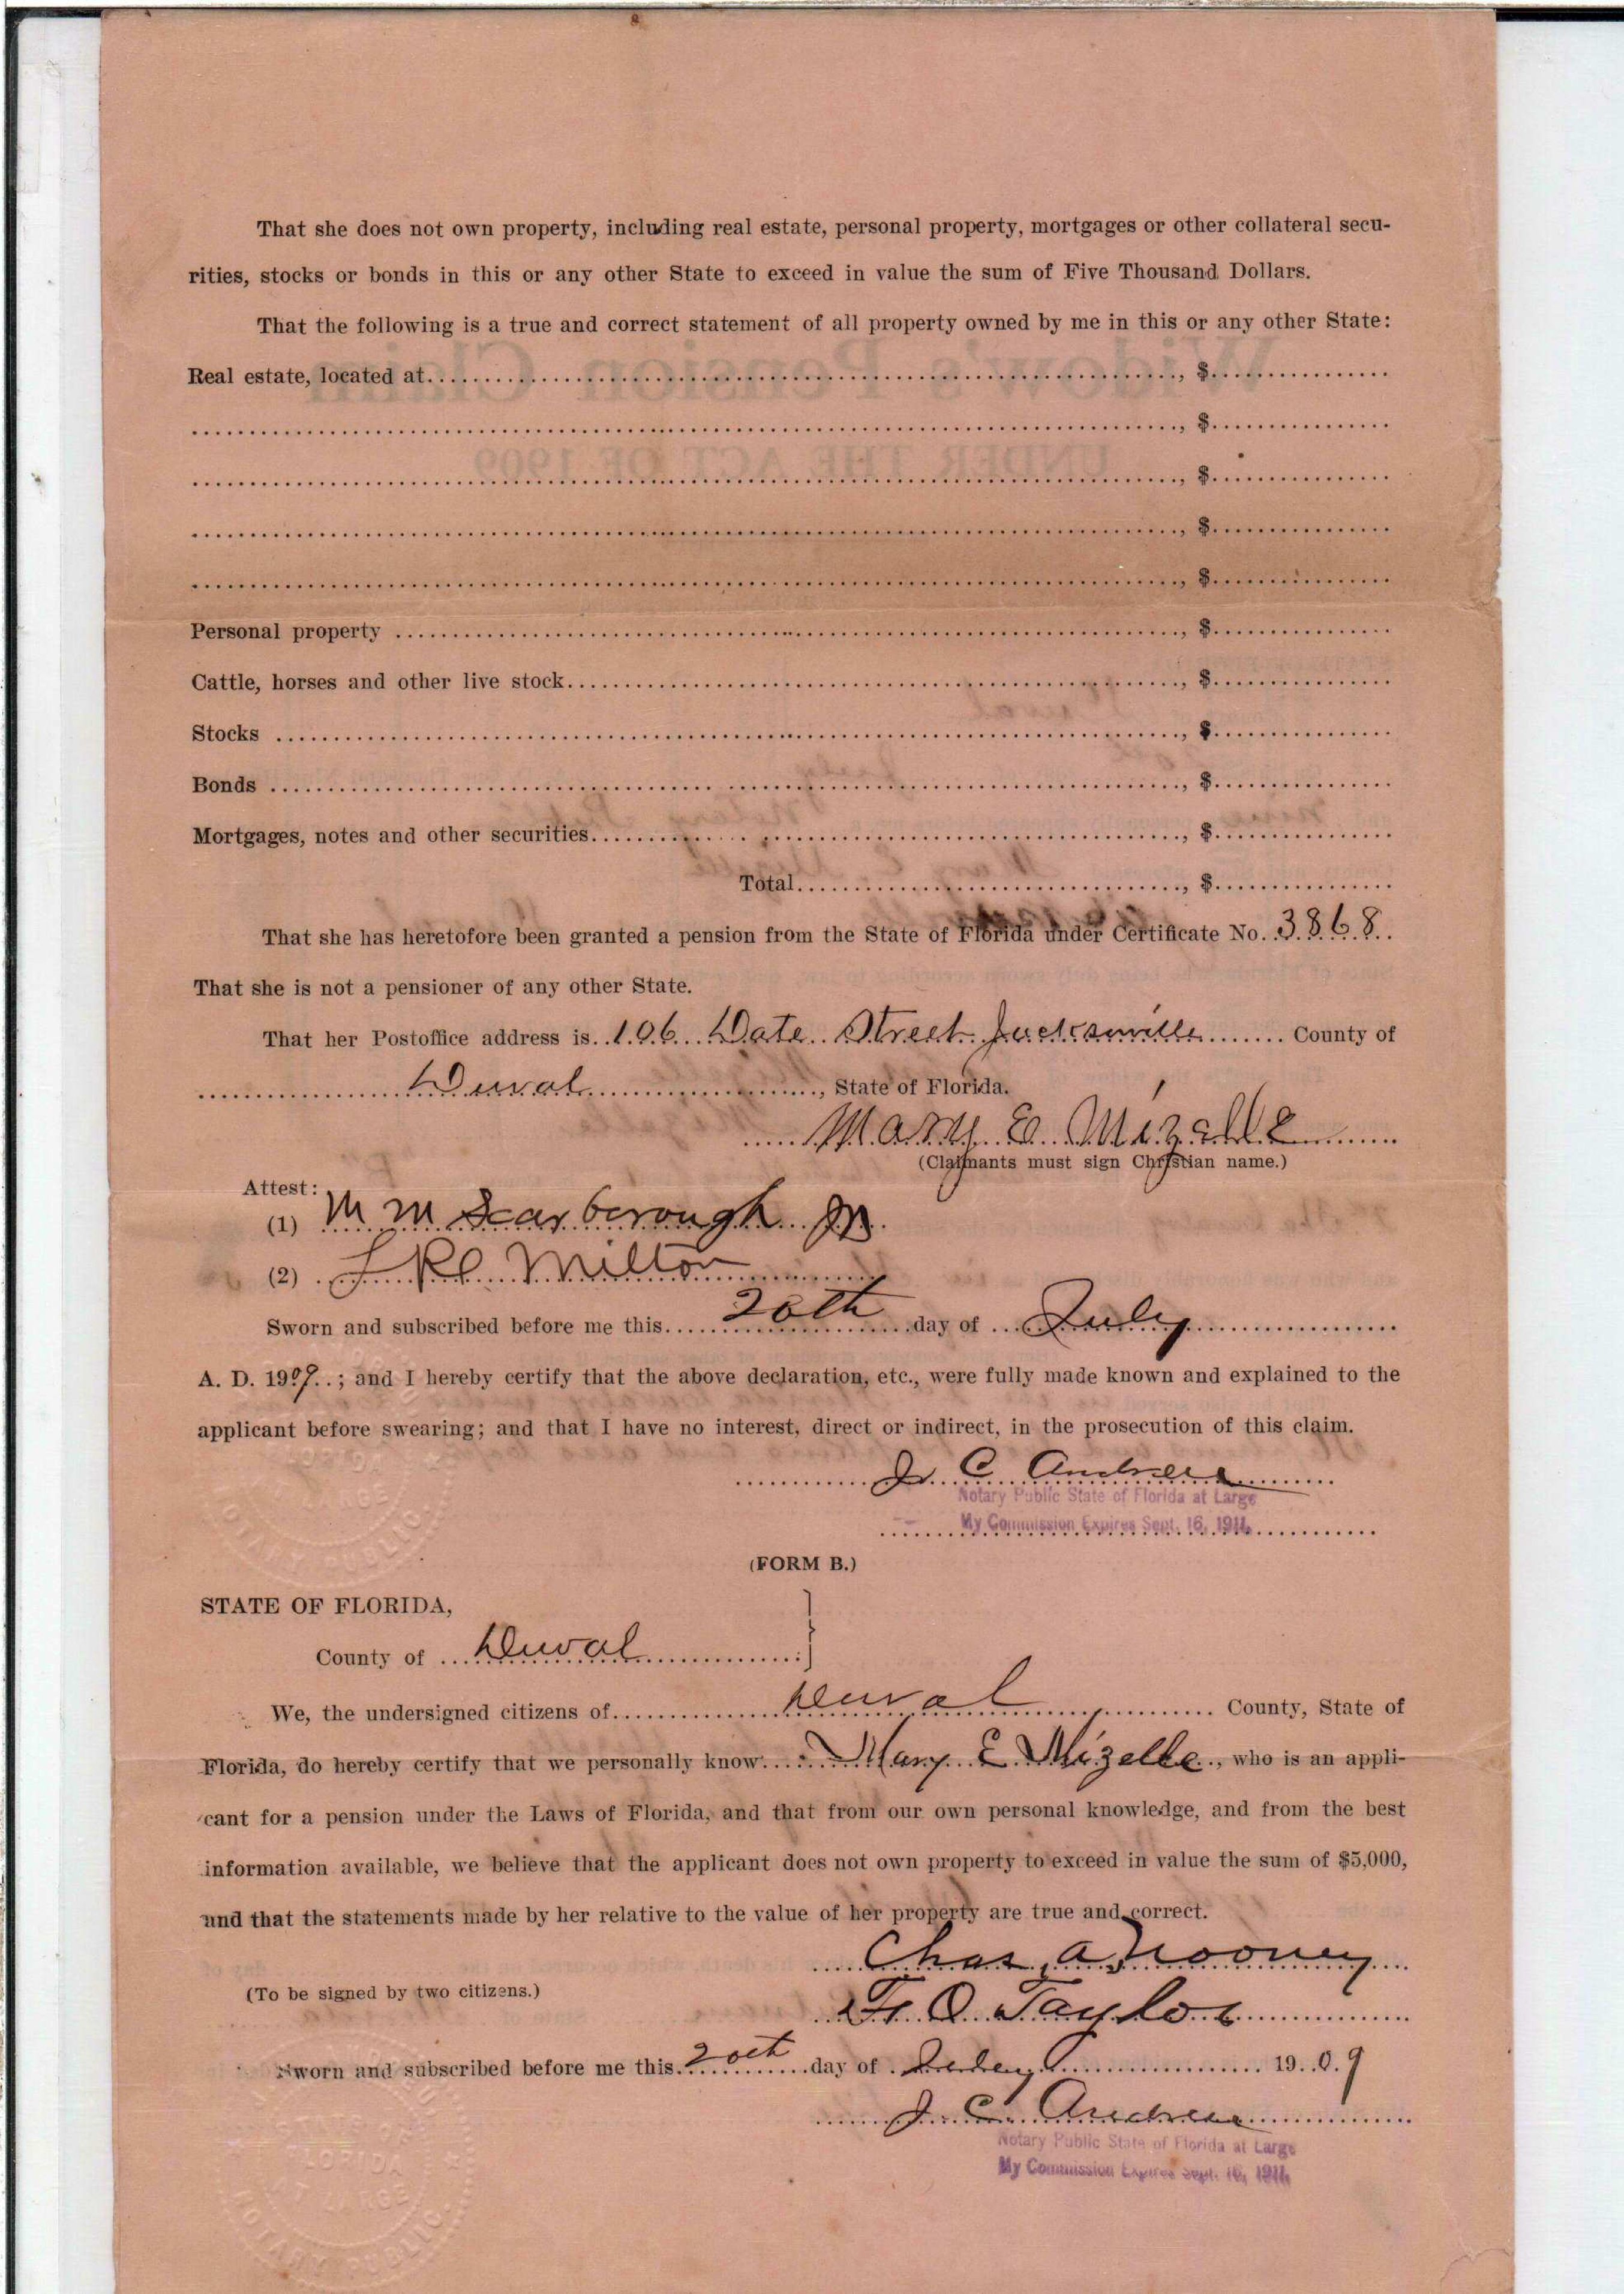 That she does not own property, including real estate, personal property, mortgages or other collateral secu-
rities, stocks or bonds in this or any other State to exceed in value the sum of Five Thousand Dollars.
That the following is a true and correct statement of all property owned by me in this or any other State:
Widow's Pension Claim
Real estate, located at.............................., $..............
.............................., $..............
UNDER THE ACT OF 1909
.............................., $..............
.............................., $..............
.............................., $..............
Personal property .............................., $..............
Cattle, horses and other live stock.............................., $..............
Stocks .............................., $..............
Bonds .............................., $..............
Mortgages, notes and other securities.............................., $..............
Total.............................., $..............
That she has heretofore been granted a pension from the State of Florida under Certificate No. 3868
That she is not a pensioner of any other State.
That her Postoffice address is 106 Date Street Jacksonville County of
Duval, State of Florida.
Mary E. Mizelle
(Claimants must sign Christian name.)
Attest:
(1) M M Scarborough Jr
(2) Milton
Sworn and subscribed before me this 20th day of July
A. D. 1909; and I hereby certify that the above declaration, etc., were fully made known and explained to the
applicant before swearing; and that I have no interest, direct or indirect, in the prosecution of this claim.
J. C. Andreu
Notary Public State of Florida at Large
My Commission Expires Sept. 16, 1911.
(FORM B.)
STATE OF FLORIDA,
County of Duval
We, the undersigned citizens of Duval County, State of
Florida, do hereby certify that we personally know Mary E Mizelle, who is an appli-
cant for a pension under the Laws of Florida, and that from our own personal knowledge, and from the best
information available, we believe that the applicant does not own property to exceed in value the sum of $5,000,
and that the statements made by her relative to the value of her property are true and correct.
Chas. A. Mooney
(To be signed by two citizens.)
F. O. Taylor
Sworn and subscribed before me this 20th day of July 1909
J. C. Andreu
Notary Public State of Florida at Large
My Commission Expires Sept. 16, 1911.
STATE OF
FLORIDA
AT LARGE
NOTARY PUBLIC